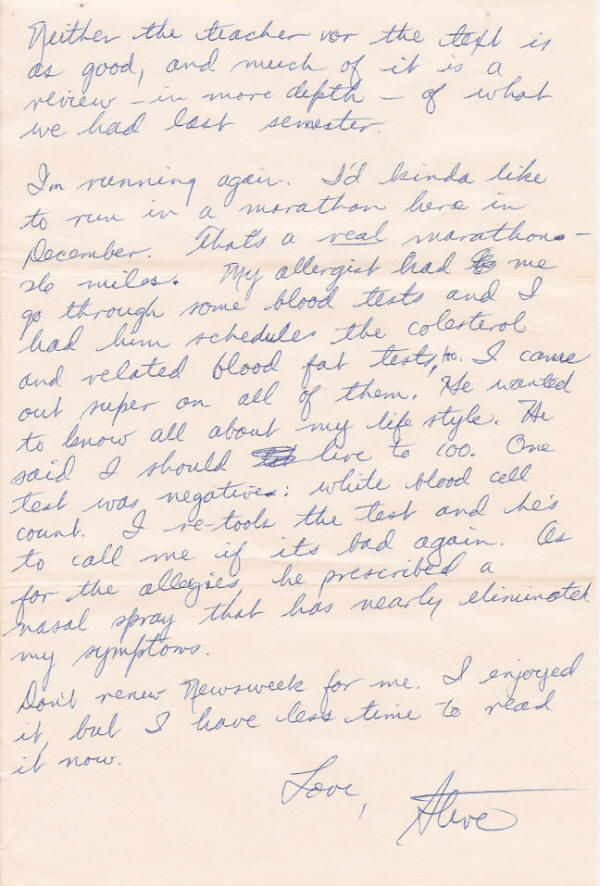 Neither the teacher nor the text is
as good, and much of it is a
review – in more depth – of what
we had last semester.
I'm running again. I'd kinda like
to run in a marathon here in
December. That's a real marathon –
26 miles. My allergist had me
go through some blood tests and I
had him schedule the colesterol
and related blood fat tests, too. I came
out super on all of them. He wanted
to know all about my life style. He
said I should live to 100. One
test was negative: white blood cell
count. I re-took the test and he's
to call me if its bad again. As
for the allergies, he prescribed a
nasal spray that has nearly eliminated
my symptoms.
Don't renew Newsweek for me. I enjoyed
it, but I have less time to read
it now.
Love,
Steve